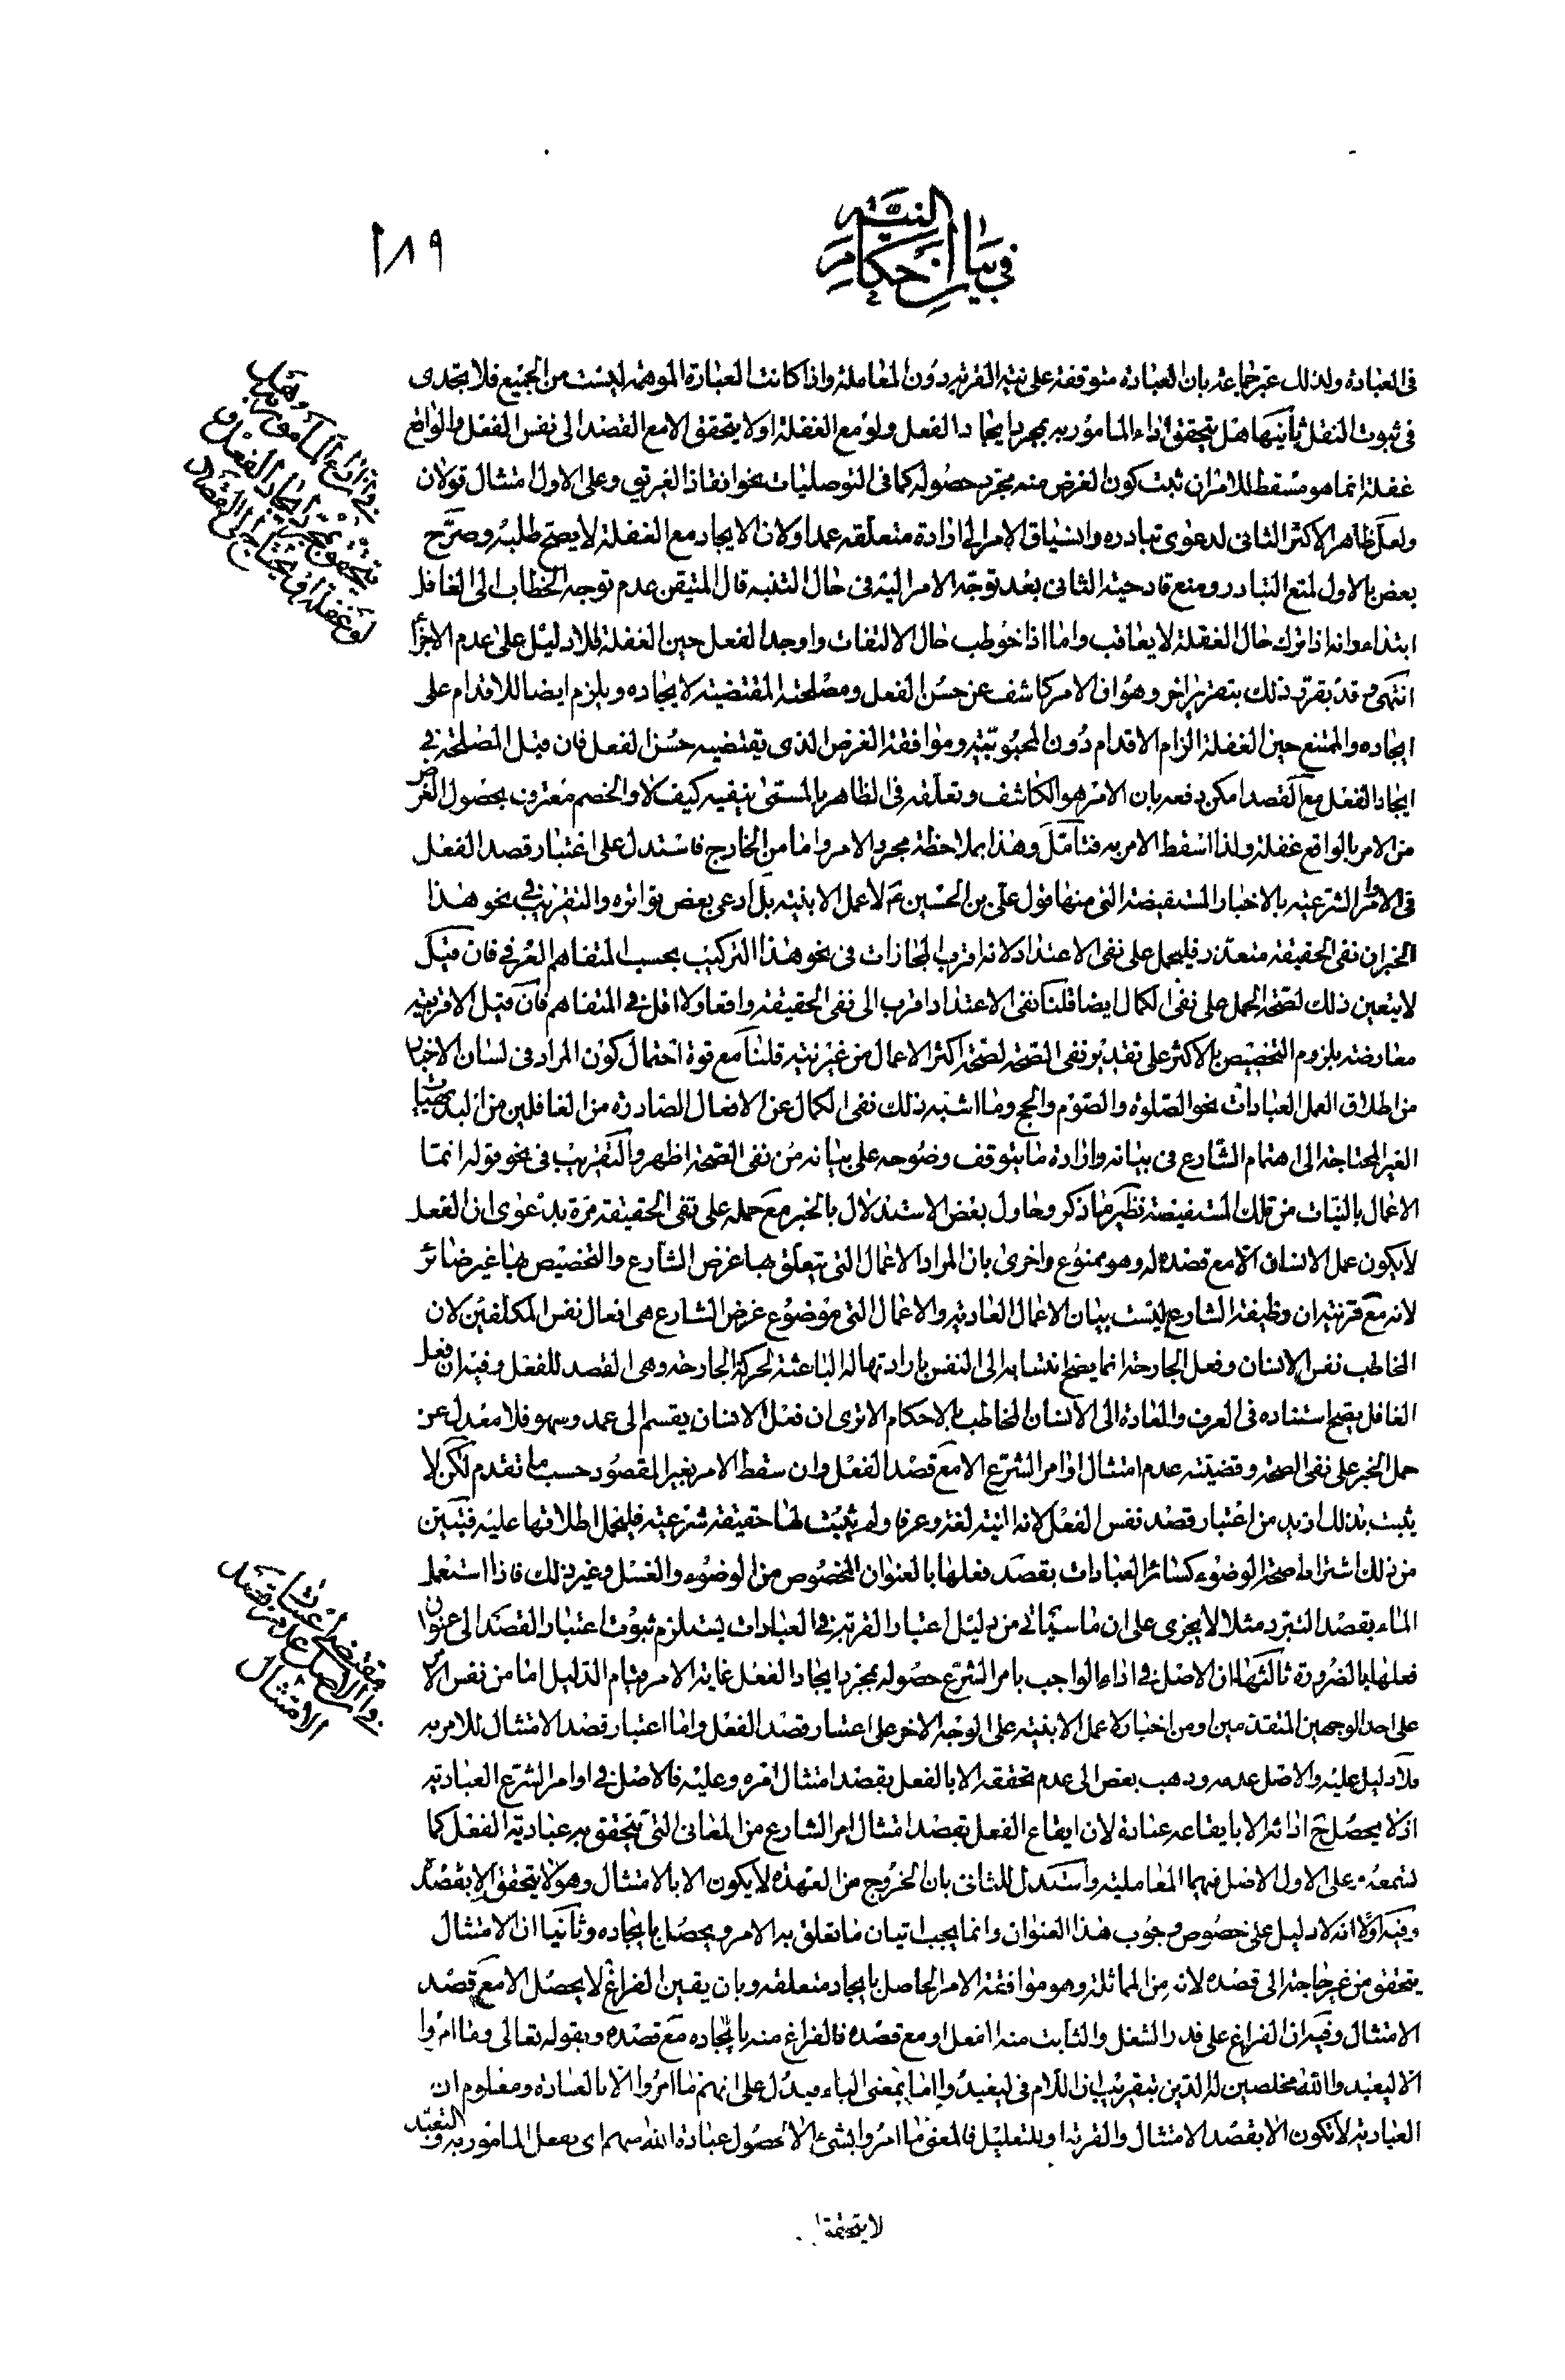 في بيان احكام النية
١٨٩
فى العبادة ولذلك عبر جماعة بان العبادة متوقفة على نية القربة دون المعاملة واذا كانت العبارة الموهمة ليست من الجميع فلا يجدى
فى ثبوت النقل ثانيها هل يتحقق اداء المامور به بمجرد ايجاد الفعل ولو مع الغفلة او لا يتحقق الا مع القصد الى نفس الفعل والواقع
غفلة انما هو مسقط للامر ان ثبت كون الغرض منه مجرد حصوله كما فى التوصليات نحو انقاذ الغريق وعلى الاول امتثال قولان
ولعل ظاهر الاكثر الثانى لدعوى تبادره وانسياق الامر الى ارادة متعلقه عمدا ولان الايجاد مع الغفلة لا يصح طلبه وصرح
بعض بالاول لمنع التبادر ومنع قادحية الثانى بعد توجه الامر اليه فى حال التنبه قال المتيقن عدم توجه الخطاب الى الغافل
ابتداء وانه اذا ترك حال الغفلة لا يعاقب واما اذا خوطب حال الالتفات واوجد الفعل حين الغفلة فلا دليل على عدم الاجزاء
انتهى وقد يقرب ذلك بتقرير اخر وهو ان الامر كاشف عن حسن الفعل ومصلحته المقتضية لايجاده ويلزم ايضا للاقدام على
ايجاده والممتنع حين الغفلة الزام الاقدام دون المحبوبية وموافقة الغرض الذى يقتضيه حسن الفعل فان قيل المصلحة في
ايجاد الفعل مع القصد امكن دفعه بان الامر هو الكاشف وتعلقه فى الظاهر بالمسمى ينفيه كيف لا والخصم معترف بحصول الغرض
من الامر بالواقع غفلة ولذا اسقط الامر به فتامل وهذا بملاحظة مجرد الامر واما من الخارج فاستدل على اعتبار قصد الفعل
فى الاوامر الشرعية بالاخبار المستفيضة التى منها قول على بن الحسين ع لا عمل الا بنية بل ادعى بعض تواتره والتقريب في نحو هذا
الخبر ان نفى الحقيقة متعذر فليحمل على نفى الاعتداد لانه اقرب المجازات فى نحو هذا التركيب بحسب المتفاهم العرفي فان قيل
لا يتعين ذلك لصحة الحمل على نفى الكمال ايضا قلنا نفى الاعتداد اقرب الى نفى الحقيقة واقعا ولا اقل في المتفاهم فان قيل الاقربية
معارضة بلزوم التخصيص بالاكثر على تقدير نفى الصحة لصحة اكثر الاعمال من غير نية قلنا مع قوة احتمال كون المراد فى لسان الاخبار
من اطلاق العمل العبادات نحو الصلوة والصوم والحج وما اشبه ذلك نفى الكمال عن الافعال الصادرة من الغافلين من البديهيات
الغير المحتاجة الى اهتمام الشارع فى بيانه وارادة ما يتوقف وضوحه على بيانه من نفى الصحة اظهر والتقريب فى نحو قوله انما
الاعمال بالنيات من تلك المستفيضة نظير ما ذكر وحاول بعض الاستدلال بالخبر مع حمله على نفى الحقيقة مرة بدعوى ان الفعل
لا يكون عمل الانسان الا مع قصده له وهو ممنوع واخرى بان المراد الاعمال التى يتعلق بها غرض الشارع والتخصيص بها غير ضائر
لانه مع قرينة ان وظيفة الشارع ليست بيان الاعمال العادية والاعمال التى موضوع غرض الشارع هى افعال نفس المكلفين لان
المخاطب نفس الانسان وفعل الجارحة انما يصح انتسابه الى النفس بارادتها له الباعثة لحركة الجارحة وهى القصد للفعل وفيه ان فعل
الغافل يصح استناده فى العرف والعادة الى الانسان المخاطب بالاحكام الا ترى ان فعل الانسان يقسم الى عمد وسهو فلا معدل عن
حمل الخبر على نفى الصحة وقضيته عدم امتثال اوامر الشرع الا مع قصد الفعل وان سقط الامر بغير المقصود حسب ما تقدم لكن لا
يثبت بذلك ازيد من اعتبار قصد نفس الفعل لانه النية لغة وعرفا ولم يثبت لها حقيقة شرعية فليحمل اطلاقها عليه فتبين
من ذلك اشتراط صحة الوضوء كسائر العبادات بقصد فعلها بالعنوان المخصوص من الوضوء والغسل وغير ذلك فاذا استعمل
الماء بقصد التبرد مثلا لا يجزى على ان ما سياتى من دليل اعتبار القربة في العبادات يستلزم ثبوت اعتبار القصد الى عنوان
فعلها بالضرورة ثالثها ان الاصل في اداء الواجب بامر الشرع حصوله بمجرد ايجاد الفعل غاية الامر قيام الدليل اما من نفس الامر
على احد الوجهين المتقدمين او من اخبار لا عمل الا بنية على الوجه الاخر على اعتبار قصد الفعل واما اعتبار قصد الامتثال للامر به
فلا دليل عليه والاصل عدمه وذهب بعض الى عدم تحققه الا بالفعل بقصد امتثال امره وعليه فالاصل في اوامر الشرع العبادية
اذ لا يحصل ح اداؤه الا بايقاعه عبادة لان ايقاع الفعل بقصد امتثال امر الشارع من المعانى التى يتحقق به عبادية الفعل كما
تسمعه وعلى الاول الاصل فيها المعاملية واستدل للثانى بان الخروج من العهدة لا يكون الا بالامتثال وهو لا يتحقق الا بقصده
وفيه اولا انه لا دليل على خصوص وجوب هذا العنوان وانما يجب اتيان ما تعلق به الامر ويحصل بايجاده وثانيا ان الامتثال
يتحقق من غير حاجة الى قصده لانه من المماثلة وهو موافقة الامر الحاصل بايجاد متعلقه وبان يقين الفراغ لا يحصل الا مع قصد
الامتثال وفيه ان الفراغ على قدر الشغل والثابت منه الفعل او مع قصده فالفراغ منه بايجاده مع قصده وبقوله تعالى وما امروا
الا ليعبدوا الله مخلصين له الدين بتقريب ان اللام فى ليعبدوا اما بمعنى الباء فيدل على انهم ما امروا الا بالعبادة ومعلوم ان
العبادية لا تكون الا بقصد الامتثال والقربة او للتعليل فالمعنى ما امروا بشئ الا لحصول عبادة الله منهم اى بفعل المامور به والتعبد
لا يتحقق
في ان اداء المأمور به هل
يتحقق بمجرد ايجاد الفعل و
لو غفلة او يحتاج الى القصد
في ان الاصل عدم قصد
الامتثال